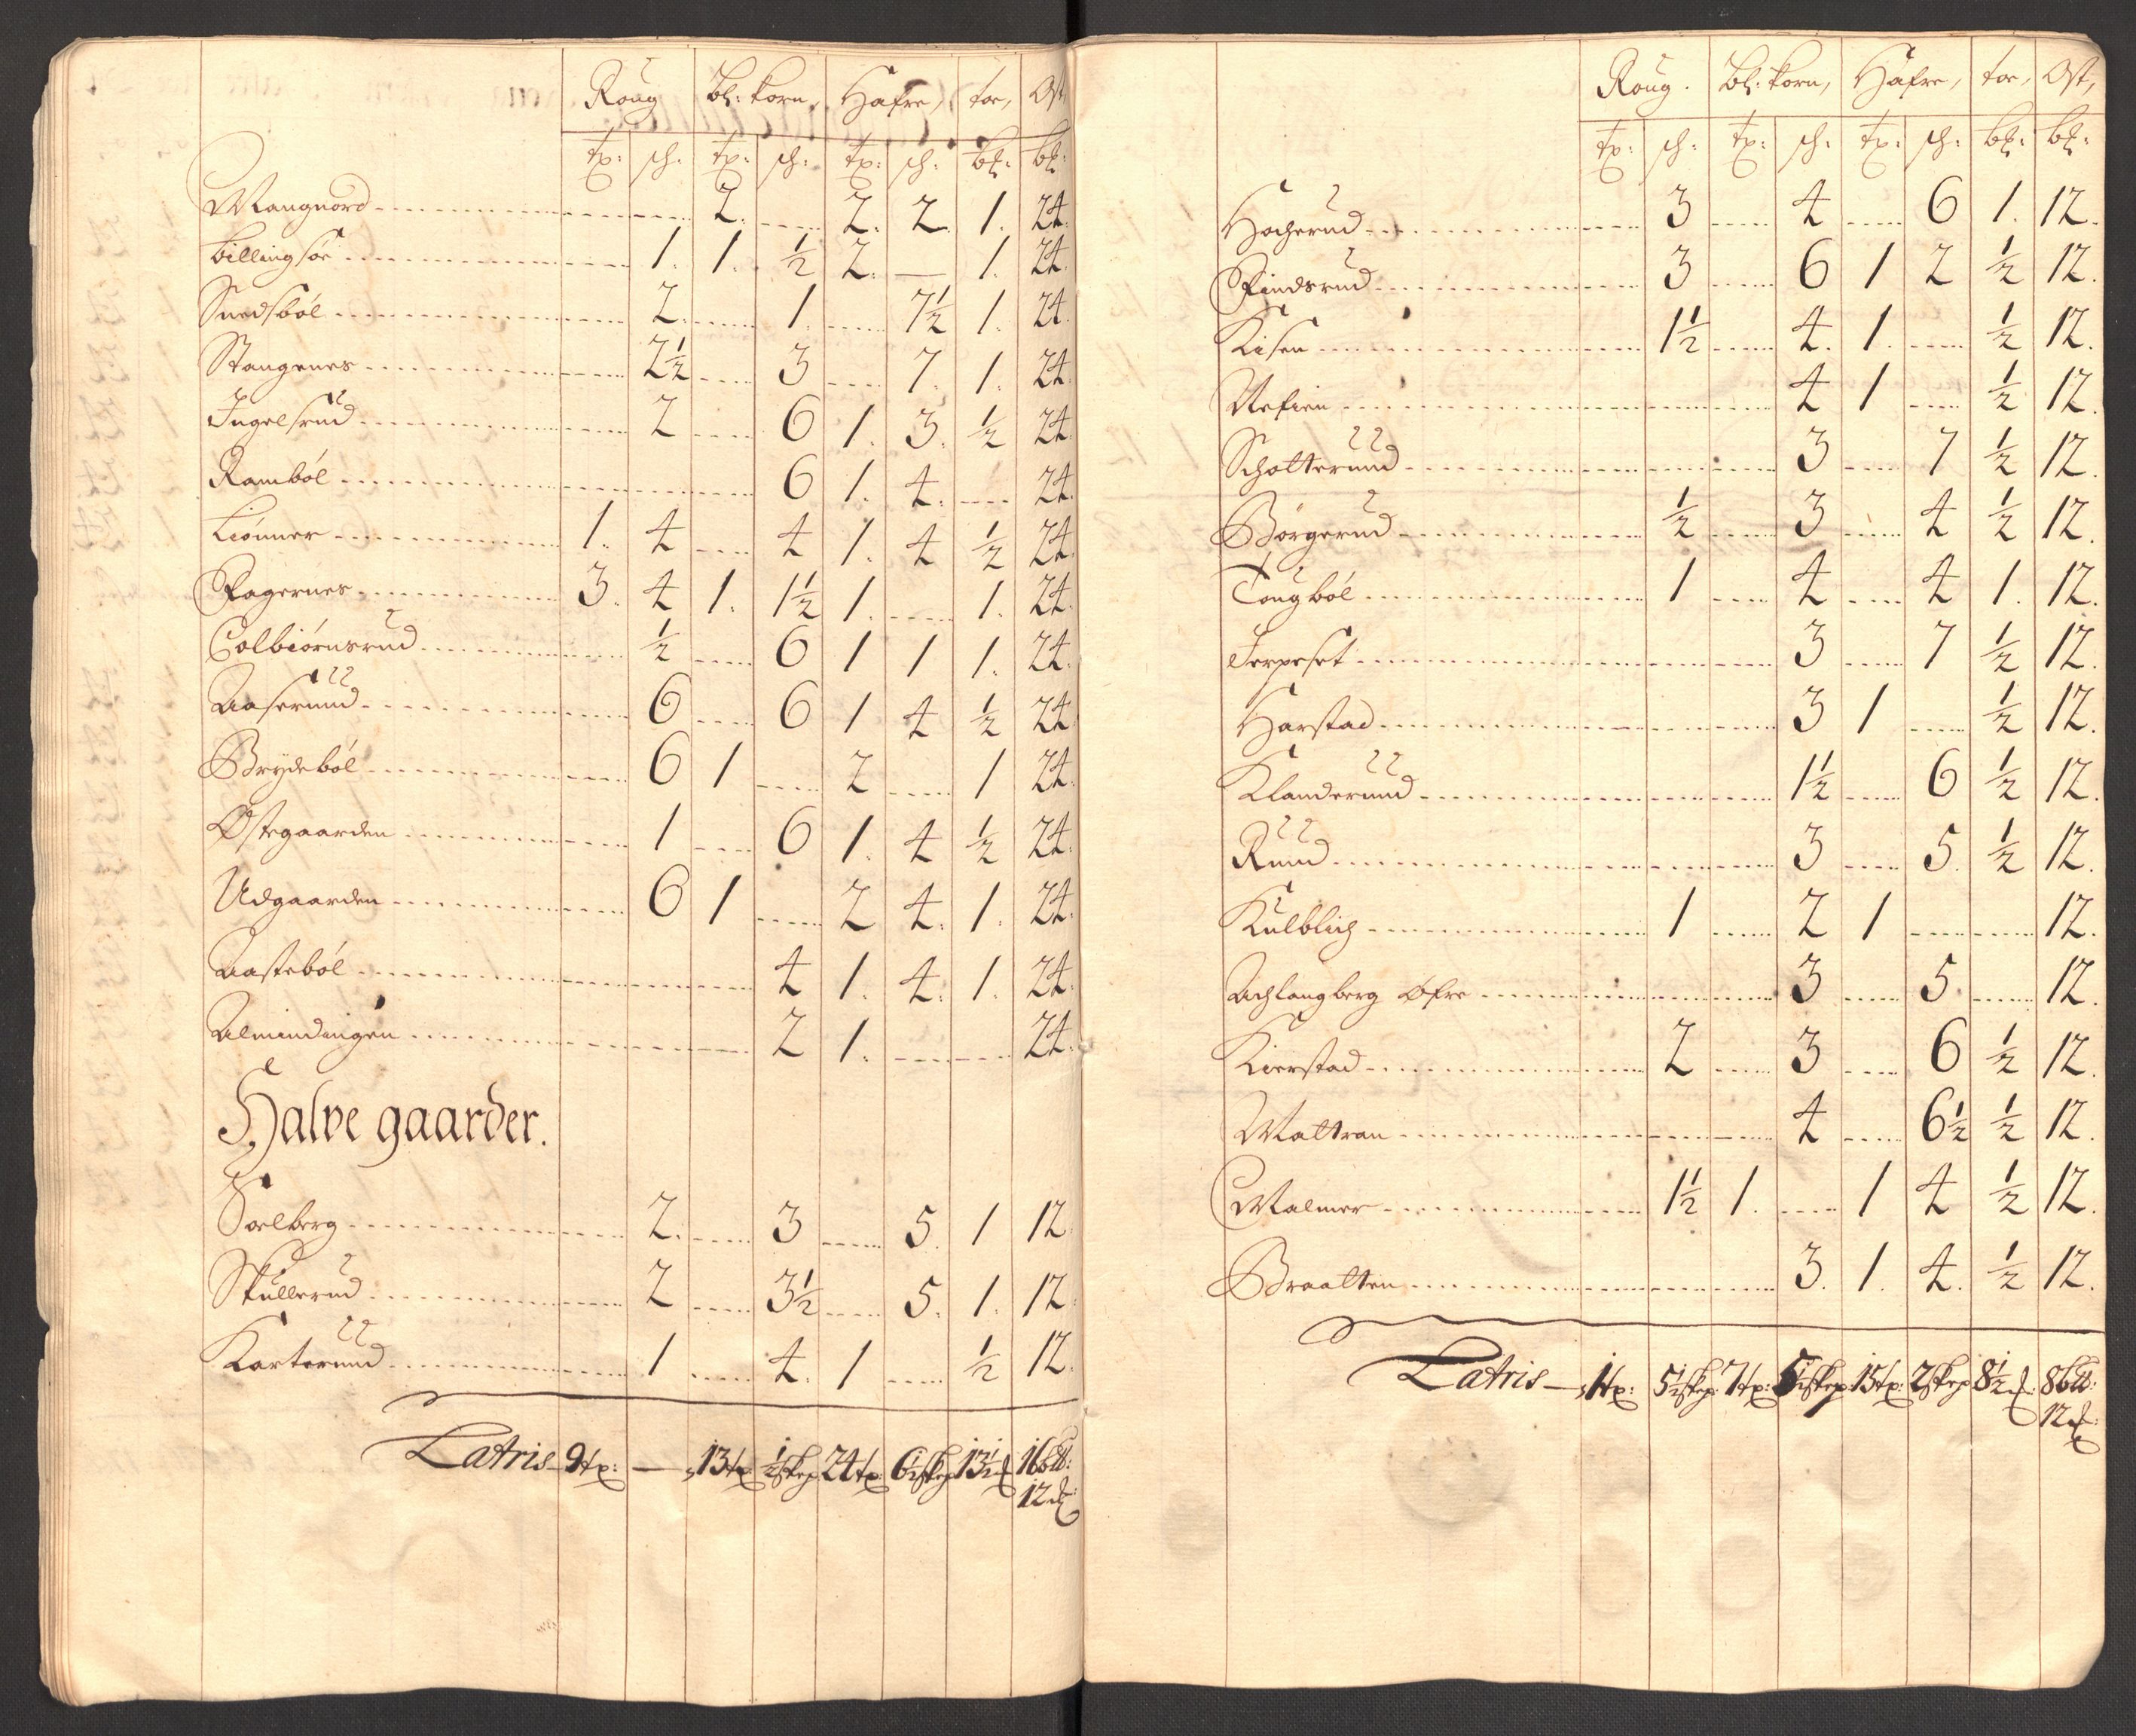 Roug Bl: korn, Hafre, toe, Ost
tø: sch: tø: sch: tø: sch: b℔: b℔:
Mangnord 2. 2. 2. 1. 24.
Billingsøe 1. 1. ½ 2. — 1. 24.
Snedsböl 2. 1. 7½ 1. 24.
Stangenes 2½ 3 7. 1. 24.
Ingelsrud 2 6 1. 3. ½ 24.
Ramböl 6 1. 4. 24.
Liönner 1. 4 4 1. 4 ½ 24.
Fagernes 3. 4 1. 1½ 1. 1. 24.
Colbiörnsrud ½ 6 1 1 1. 24.
Aaseruud 6 6 1 4 ½ 24
Brydeböl 6 1 2 1 24.
Østgaarden 1 6 1. 4 ½ 24.
Udgaarden 6 1 2 4. 1. 24.
Aasteböl 4 1. 4. 1. 24.
Almindingen 2 1. 24.
Halve gaarder.
Soelberg 2. 3 5. 1 12.
Skullerud 2 3½ 5. 1. 12.
Karteruud 1 4. 1 ½ 12.
Latris 9 tø: — 13 tø ½ skep 24 tø: 6½ skep 13½ 16 b℔: 12 ℔
Roug. Bl: korn, Hafre, toe, Ost,
tø: sch: tø: sch: tø: sch: b℔: b℔:
Hocherud 3 4 6 1. 12.
Findsrud 3 6 1 2 ½ 12.
Kisen 1½ 4. 1. ½ 12.
Nefien 4 1 ½ 12.
Scholteruud 3 7 ½ 12.
Börgerud ½ 3 4 ½ 12.
Tougböl 1 4 4 1. 12.
Jerpeset 3 7 ½ 12.
Harstad 3 1 ½ 12.
Klanderuud 1½ 6 ½ 12.
Ruud 3 5. ½ 12.
Kulblich 1 2 1 12.
Achlangberg Øfre 3 5. 12.
Kierstad 2 3 6 ½ 12.
Maltran 4 6½ ½ 12.
Malmer 1½ 1. 1 4 ½ 12.
Braatten 3. 1. 4. ½ 12.
Latris 1 tø: 5½ skep: 7 tø: 5½ skep 15 tø: 2 skep 8½ 8 b℔: 12 ℔: